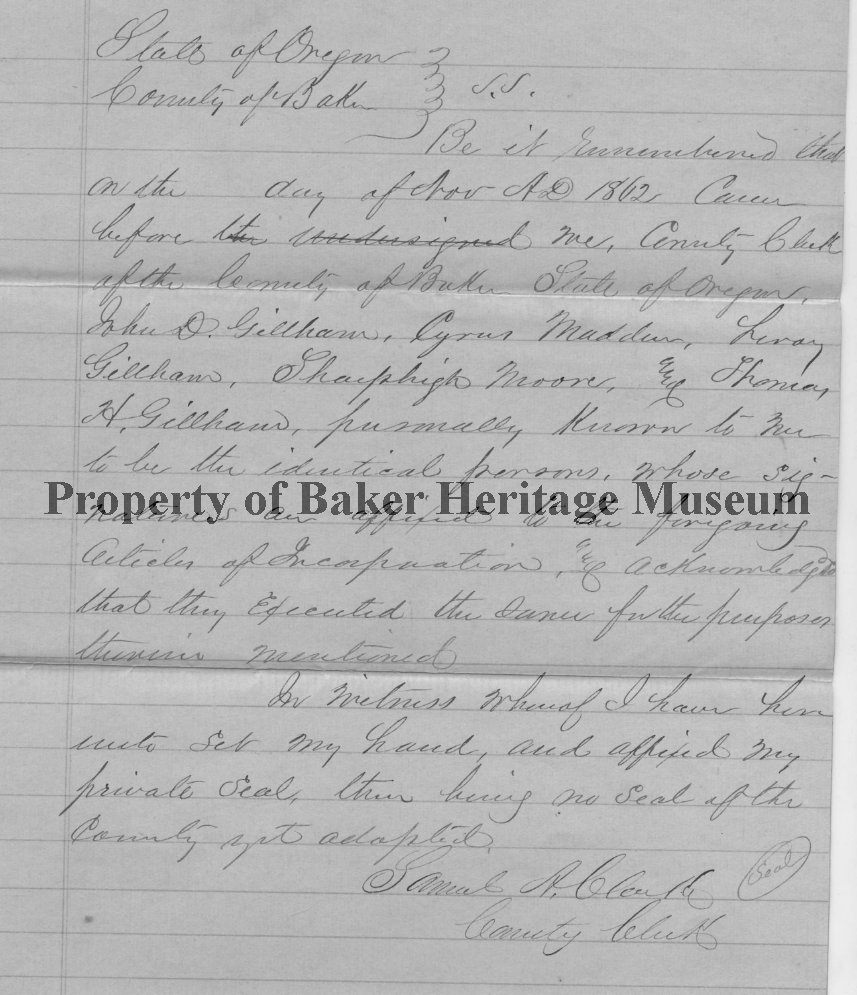 State of Oregon
County of Baker } S.S.
Be it remembered that
on the day of Nov AD 1862 Came
before the undersigned me, County Clerk
of the County of Baker State of Oregon,
John D. Gillham, Cyrus Madden, Leroy
Gillham, Moore, & Thomas
H. Gillham, personally Known to me
to be the identical persons, whose sig-
Property of Baker Heritage Museum
natures are affixed to the foregoing
Articles of Incorporation, & acknowledged
that they Executed the same for the purposes
therein mentioned
In Witness whereof I have here
unto Set my hand, and affixed my
private Seal, there being no Seal of the
County yet adopted.
Samuel A. Clarke (Seal)
County Clerk